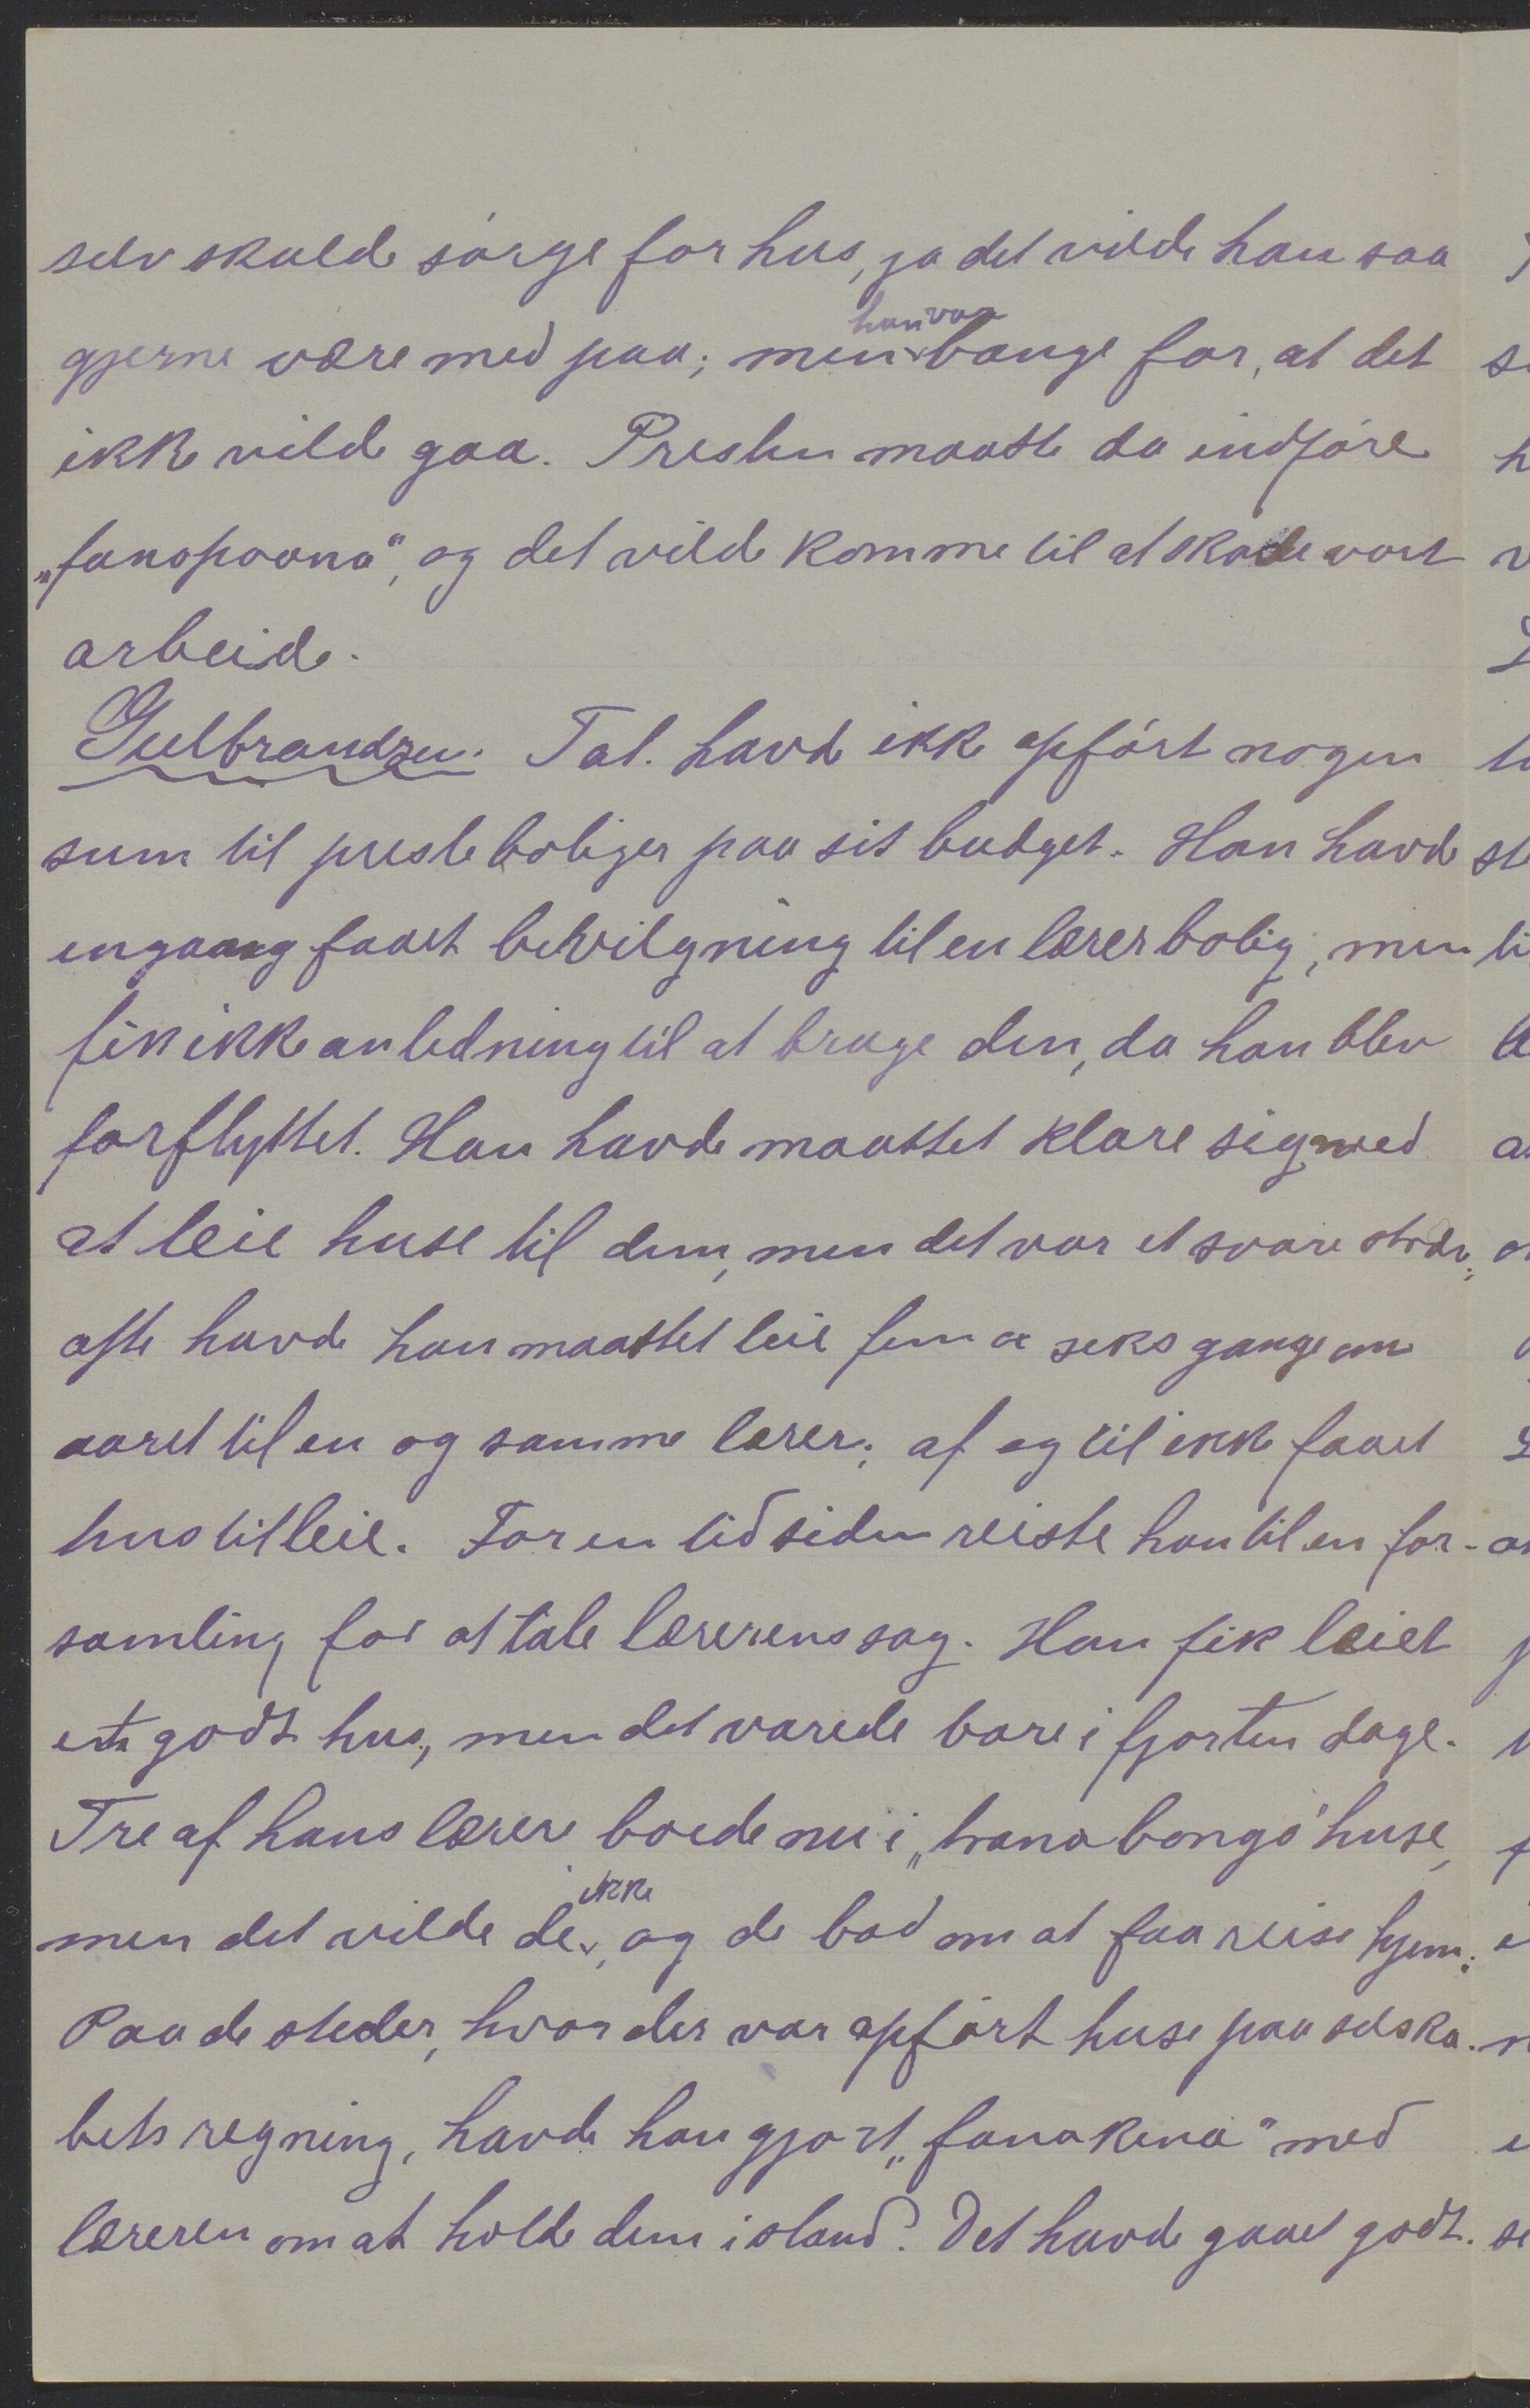 selv skulde sørge for hus, ja det vilde han saa
gjerne være med paa; men han var bange for, at det
ikke vilde gaa. Presten maatte da indføre
„fanopoana", og det vilde komme til at skade vort
arbeide.
Gulbrandsen. Tal. havde ikke opført nogen
sum til presteboliger paa sit budget. Han havde
engaang faaet bevilgning til en lærerbolig, men
fik ikke anledning til at bruge den, da han blev
forflyttet. Han havde maattet klare sig med
at leie huse til dem, men det var et svare stræv;
ofte havde han maattet leie fem a seks gange om
aaret til en og samme lærer; af og til ikke faaet
hus til leie. For en tid siden reiste han til en for-
samling for at tale lærerens sag. Han fik leiet
et godt hus, men det varede bare i fjorten dage.
Tre af hans lærere boede nu i „tranobongo" huse,
men det vilde de ikke, og de bad om at faa reise hjem.
Paa de steder, hvor der var opført huse paa selska-
bets regning, havde han gjort „fanekena" med
læreren om at holde dem istand. Det havde gaaet godt.